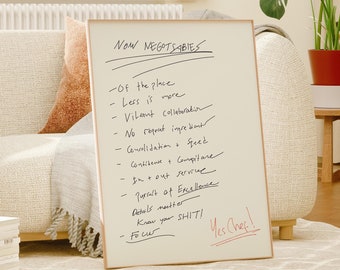 NON NEGOTIABLES
- Of the place
- Less is more
- Vibrant collaboration
- No repeat ingredients
- Consolidation + Speed
- Confidence + Competence
- In + out service
- Pursuit of Excellence
Details matter
Know your SHIT!
- Focus
Yes Chef!